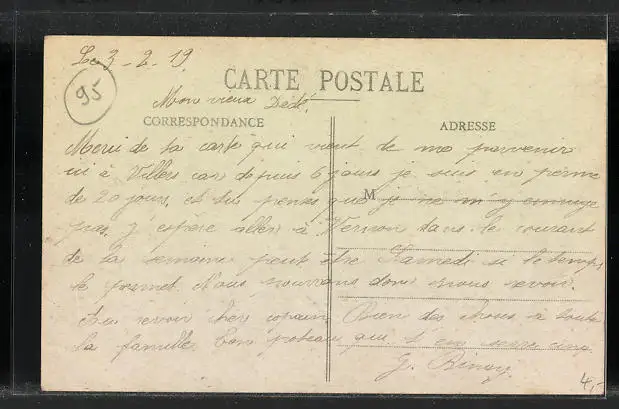 Le 3-2-19
95
CARTE POSTALE
Mon vieux Dédé,
CORRESPONDANCE
ADRESSE
M
Merci de ta carte qui vient de me parvenir
ici à Villers car depuis 6 jours je suis en perme
de 20 jours, et tu penses que je ne m'y ennuye
pas. J'espère aller à Vernon dans le courant
de la semaine peut être Samedi si le temps
le permet. Nous pourrons donc nous revoir.
Au revoir cher copain. Bien des choses à toute
la famille. Ton poteau qui t'en serre cinq.
G. Binay
4,-